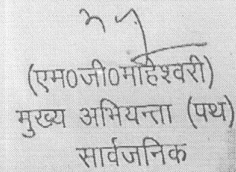 (एम0जी0माहेश्वरी)
मुख्य अभियन्ता (पथ)
सार्वजनिक